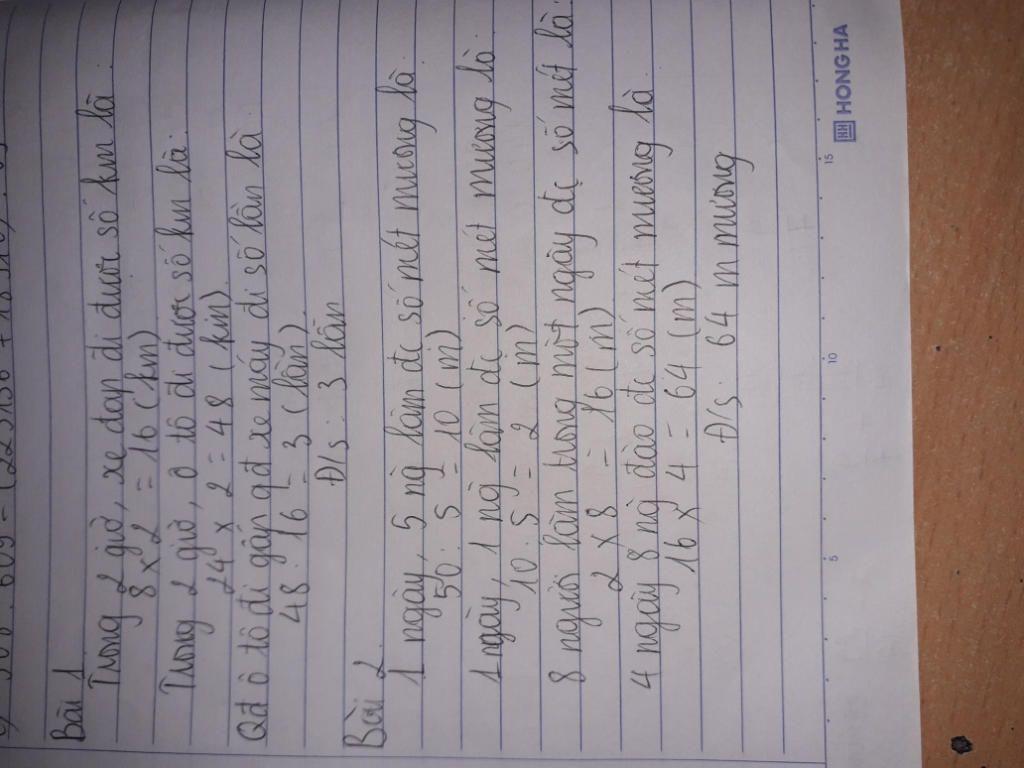 Bài 1
Trong 2 giờ, xe đạp đi được số km là.
8 x 2 = 16 (km)
Trong 2 giờ, ô tô đi được số km là:
24 x 2 = 48 (km)
Qđ ô tô đi gấp qđ xe máy đi số lần là
48 : 16 = 3 (lần)
Đ/s : 3 lần
Bài 2
1 ngày, 5 ng làm đc số mét mương là.
50 : 5 = 10 (m)
1 ngày, 1 ng làm đc số mét mương là.
10 : 5 = 2 (m)
8 người làm trong một ngày đc số mét là.
2 x 8 = 16 (m)
4 ngày 8 ng đào đc số mét mương là.
16 x 4 = 64 (m)
Đ/s. 64 m mương
5 10 15 HONG HA